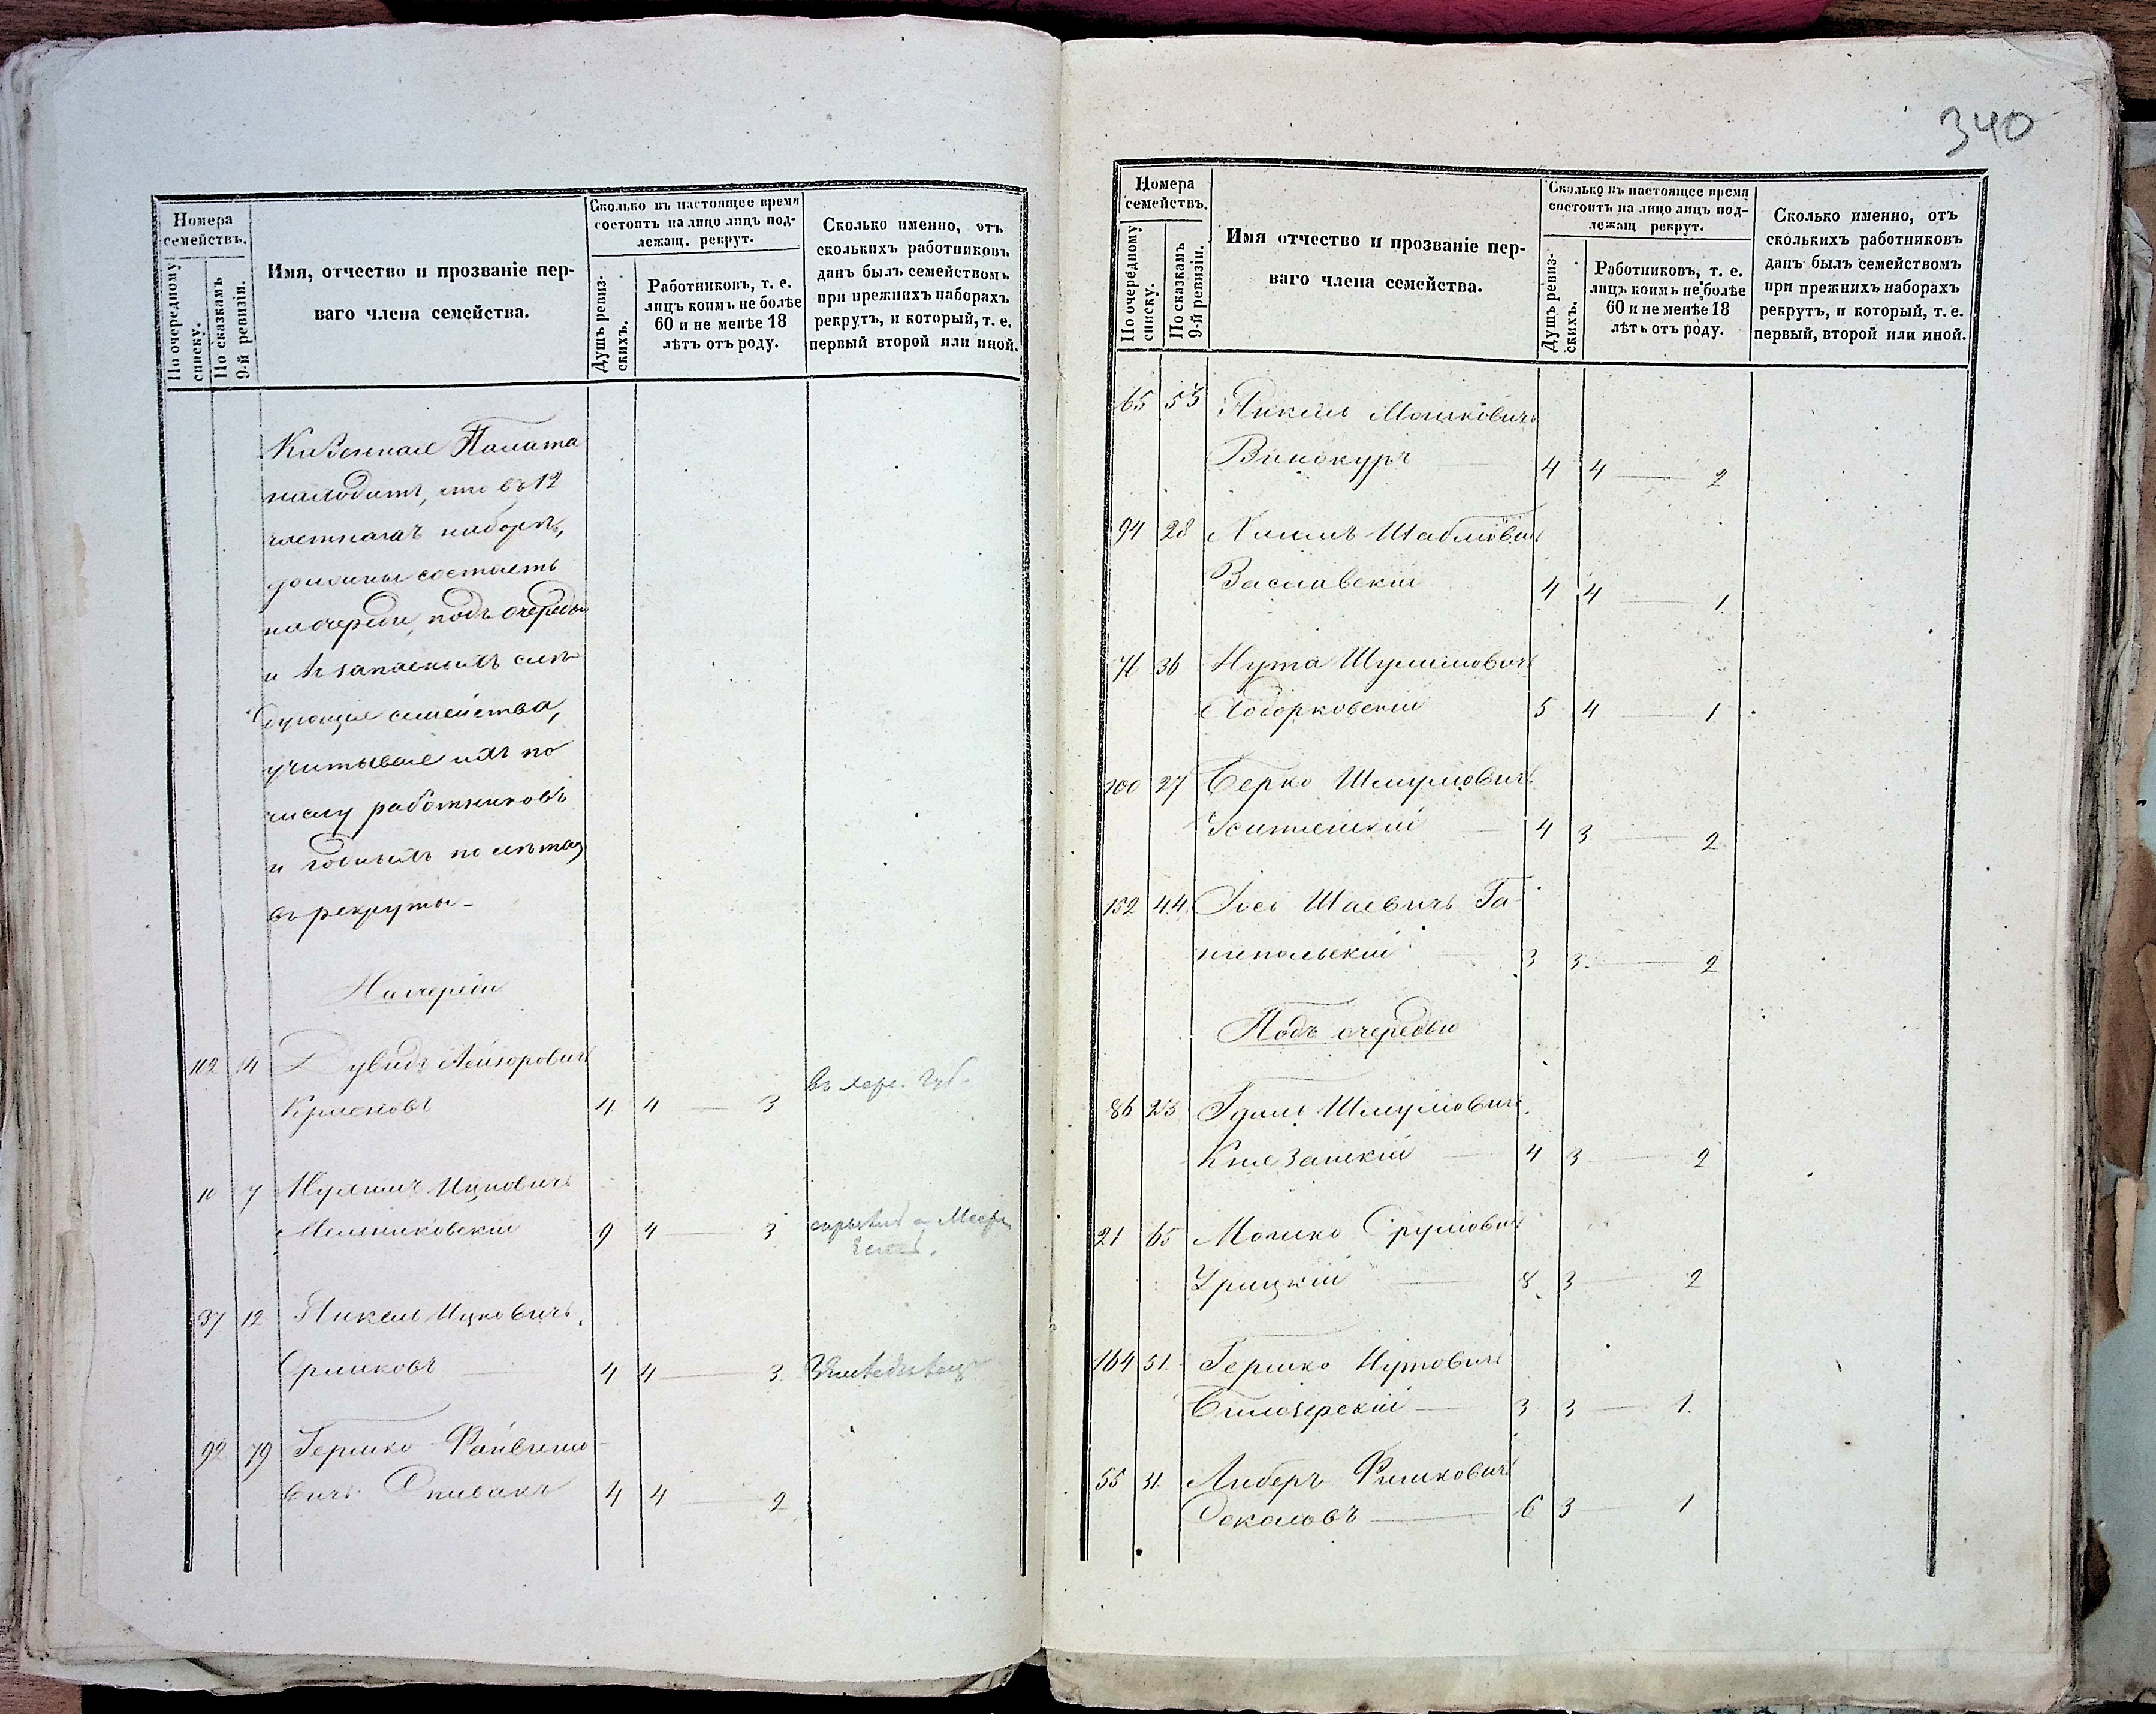 340
Номера
семействъ.
По очередному
списку.
По сказкамъ
9-й ревизіи.
Имя, отчество и прозваніе пер-
ваго члена семейства.
Сколько въ настоящее время
состоитъ на лицо лицъ под-
лежащ. рекрут.
Душъ ревиз-
скихъ.
Работниковъ, т. е.
лицъ коимъ не болѣе
60 и не менѣе 18
лѣтъ отъ роду.
Сколько именно, отъ
сколькихъ работниковъ
данъ былъ семействомъ
при прежнихъ наборахъ
рекрутъ, и который, т. е.
первый второй или иной.
Казенная Палата
находитъ, что въ 12
частномъ наборѣ,
должны состоять
на очереди, подъ очередью
и въ запасныхъ слѣ
дующіе семейства,
учитывая ихъ по
числу работниковъ
и годныхъ по лѣтамъ
въ рекруты-
На очереди
102 4 Дувидъ Лейзоровичъ
въ Хер. Губ.
4 4 — 3
10 7 Ицковичъ
Мельниковскій 9 4 3
37 12 Янкель Ицковичъ
4 4 — 3
92 79 Гершко Файвишо-
вичъ Спивакъ 4 4 — 2
Номера
семействъ.
По очередному
списку.
По сказкамъ
9-й ревизіи.
Имя отчество и прозваніе пер-
ваго члена семейства.
Сколько въ настоящее время
состоитъ на лицо лицъ под-
лежащ рекрут.
Душъ ревиз-
скихъ.
Работниковъ, т. е.
лицъ коимъ не болѣе
60 и не менѣе 18
лѣтъ отъ роду.
Сколько именно, отъ
сколькихъ работниковъ
данъ былъ семействомъ
при прежнихъ наборахъ
рекрутъ, и который, т. е.
первый, второй или иной.
65 53 Янкель Мошковичъ
Винокуръ — 4 4 — 2
94 28 Хаимъ
Заславскій 4 4 — 1
71 36 Нута Шулимовичъ
5 4 — 1
100 27 Берко Шмулевичъ
— 4 3 — 2
152 44 Іось Шаевичъ Га-
нипольскій 3 3 — 2
Подъ очередью
86 23 Гдаль Шмулевичъ
4 3 — 2
21 65 Мошко Сруліовичъ
Урицкій — 8 3 — 2
164 51 Гершко Нутовичъ
Билозерскій — 3 3 — 1.
55 31 Либеръ Фишковичъ
Соколовъ — 6 3 — 1